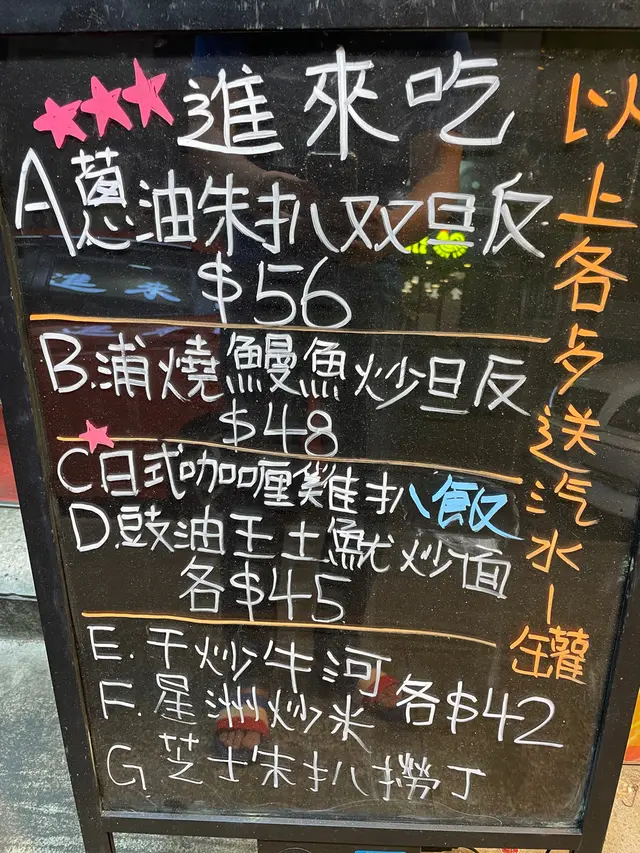 進來吃
A蔥油朱扒双旦反
$56
B.浦燒鰻魚炒旦反
$48
C日式咖喱雞扒飯
D.豉油王土魷炒面
各$45
E.干炒牛河
F.星洲炒米 各$42
G.芝士朱扒撈丁
以上各歺送汽水一罐
進來